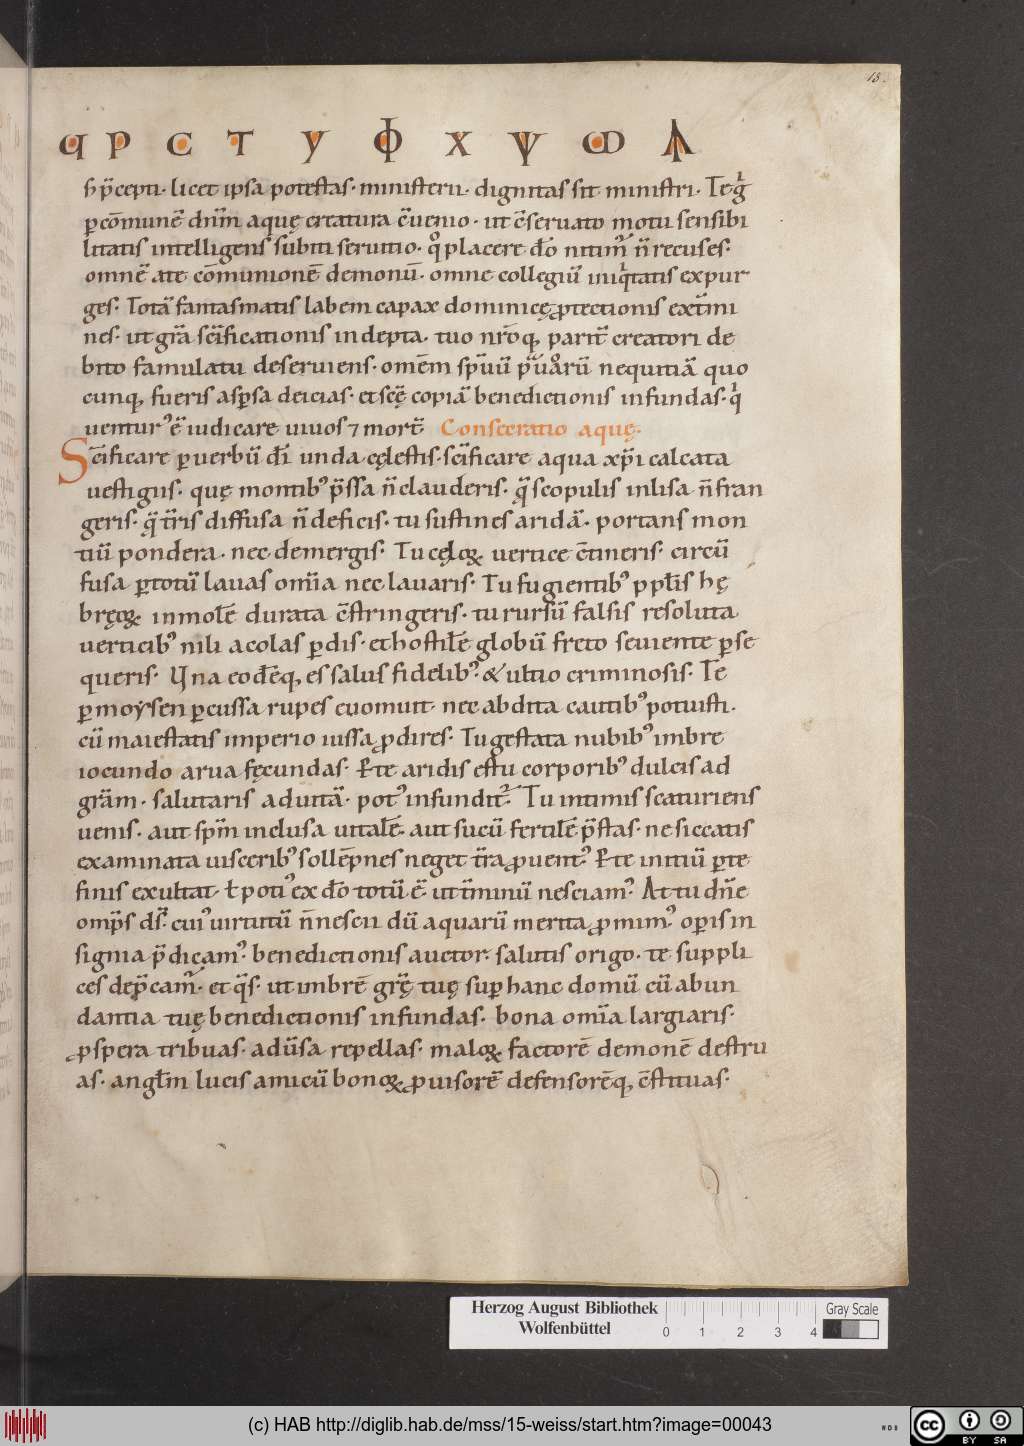 18.
ϥ ρ C T y ϕ χ ψ ω ⋔
ẜ p̄cepti· licet ipsa potestas· ministerii· dignitas sit ministri· Te gͥ
ꝑ cōmunē dnm̄ aquę creatura c̄uenio· ut c̄seruato motu sensibi
litatis intelligens subiti seruitio· qͦ placere dō nitimᷣ n̄ recuses·
omnē a te cōmunionē demonū· omne collegiū iniqͥtatis expur
ges· Totā fantasmatis labem capax dominicę ꝓtectionis ext̄mi
nes· ut grā sc̄ificationis indepta· tuo nr̄oq; parit̄ creatori de
bito famulatu deseruiens· omēm spūū p̄uarū nequitiā quo
cunq; fueris aspersa deicias· et scę̄ copiā benedictionis infundas· qͥ
uenturꝰ ē iudicare uiuos ⁊ mort̄ Consecratio aquę·
Sc̄ificare ꝑ uerbū dī unda cęlestis· sc̄ificare aqua xp̄i calcata
uestigiis· quę montibꝰ p̄ssa n̄ clauderis· q̄ scopulis inlisa n̄ fran
geris· q̄ t̄ris diffusa n̄ deficis· tu sustines aridā· portans mon
tiū pondera· nec demergis· Tu cęloꝝ uertice c̄tineris· circū
fusa ꝑ totū lauas om̄ia nec lauaris· Tu fugientibꝰ pplīs hę
bręoꝝ in molē durata c̄stringeris· tu rursū falsis resoluta
uerticibꝰ nili acolas ꝑdis· et hostilē globū freto seuiente ꝑse
queris· Una eodēq; es salus fidelibꝰ· & ultio criminosis· Te
ꝑ moẏsen ꝑcussa rupes euomuit· nec abdita cautibꝰ potuisti·
cū maiestatis imperio iussa ꝓdires· Tu gestata nubibꝰ imbre
iocundo arua fęcundas· P̲ te aridis estu corporibꝰ dulcis ad
grām· salutaris ad uitā· potꝰ infunditᷣ· Tu intimis scaturiens
uenis· aut spm̄ inclusa uitalē· aut sucū fertilē p̄stas· ne siccatis
examinata uisceribꝰ sollēpnes neget t̄ra ꝓuentꝰ· P̲ te initiū ꝑ te
finis exultat· ł potiꝰ ex dō totū ē ut t̄minū nesciamꝰ· At tu dn̄e
omp̄s ds̄· cuiꝰ uirtutū n̄ nescii dū aquarū merita ꝓmimꝰ· oꝑis in
signia p̄dicamꝰ· benedictionis auctor· salutis origo· te suppli
ces dep̄camᷣ· et q̄s· ut imbrē gr̄ę tuę suꝑ hanc domū cū abun
dantia tuę benedictionis infundas· bona om̄ia largiaris·
ꝓspera tribuas· adūsa repellas· maloꝝ factorē demonē destru
as· angłm lucis amicū bonoꝝ ꝓuisorē defensorēq; c̄stituas·
Herzog August Bibliothek
Wolfenbüttel
0 1 2 3 4
Gray Scale
(c) HAB http://diglib.hab.de/mss/15-weiss/start.htm?image=00043
cc BY SA